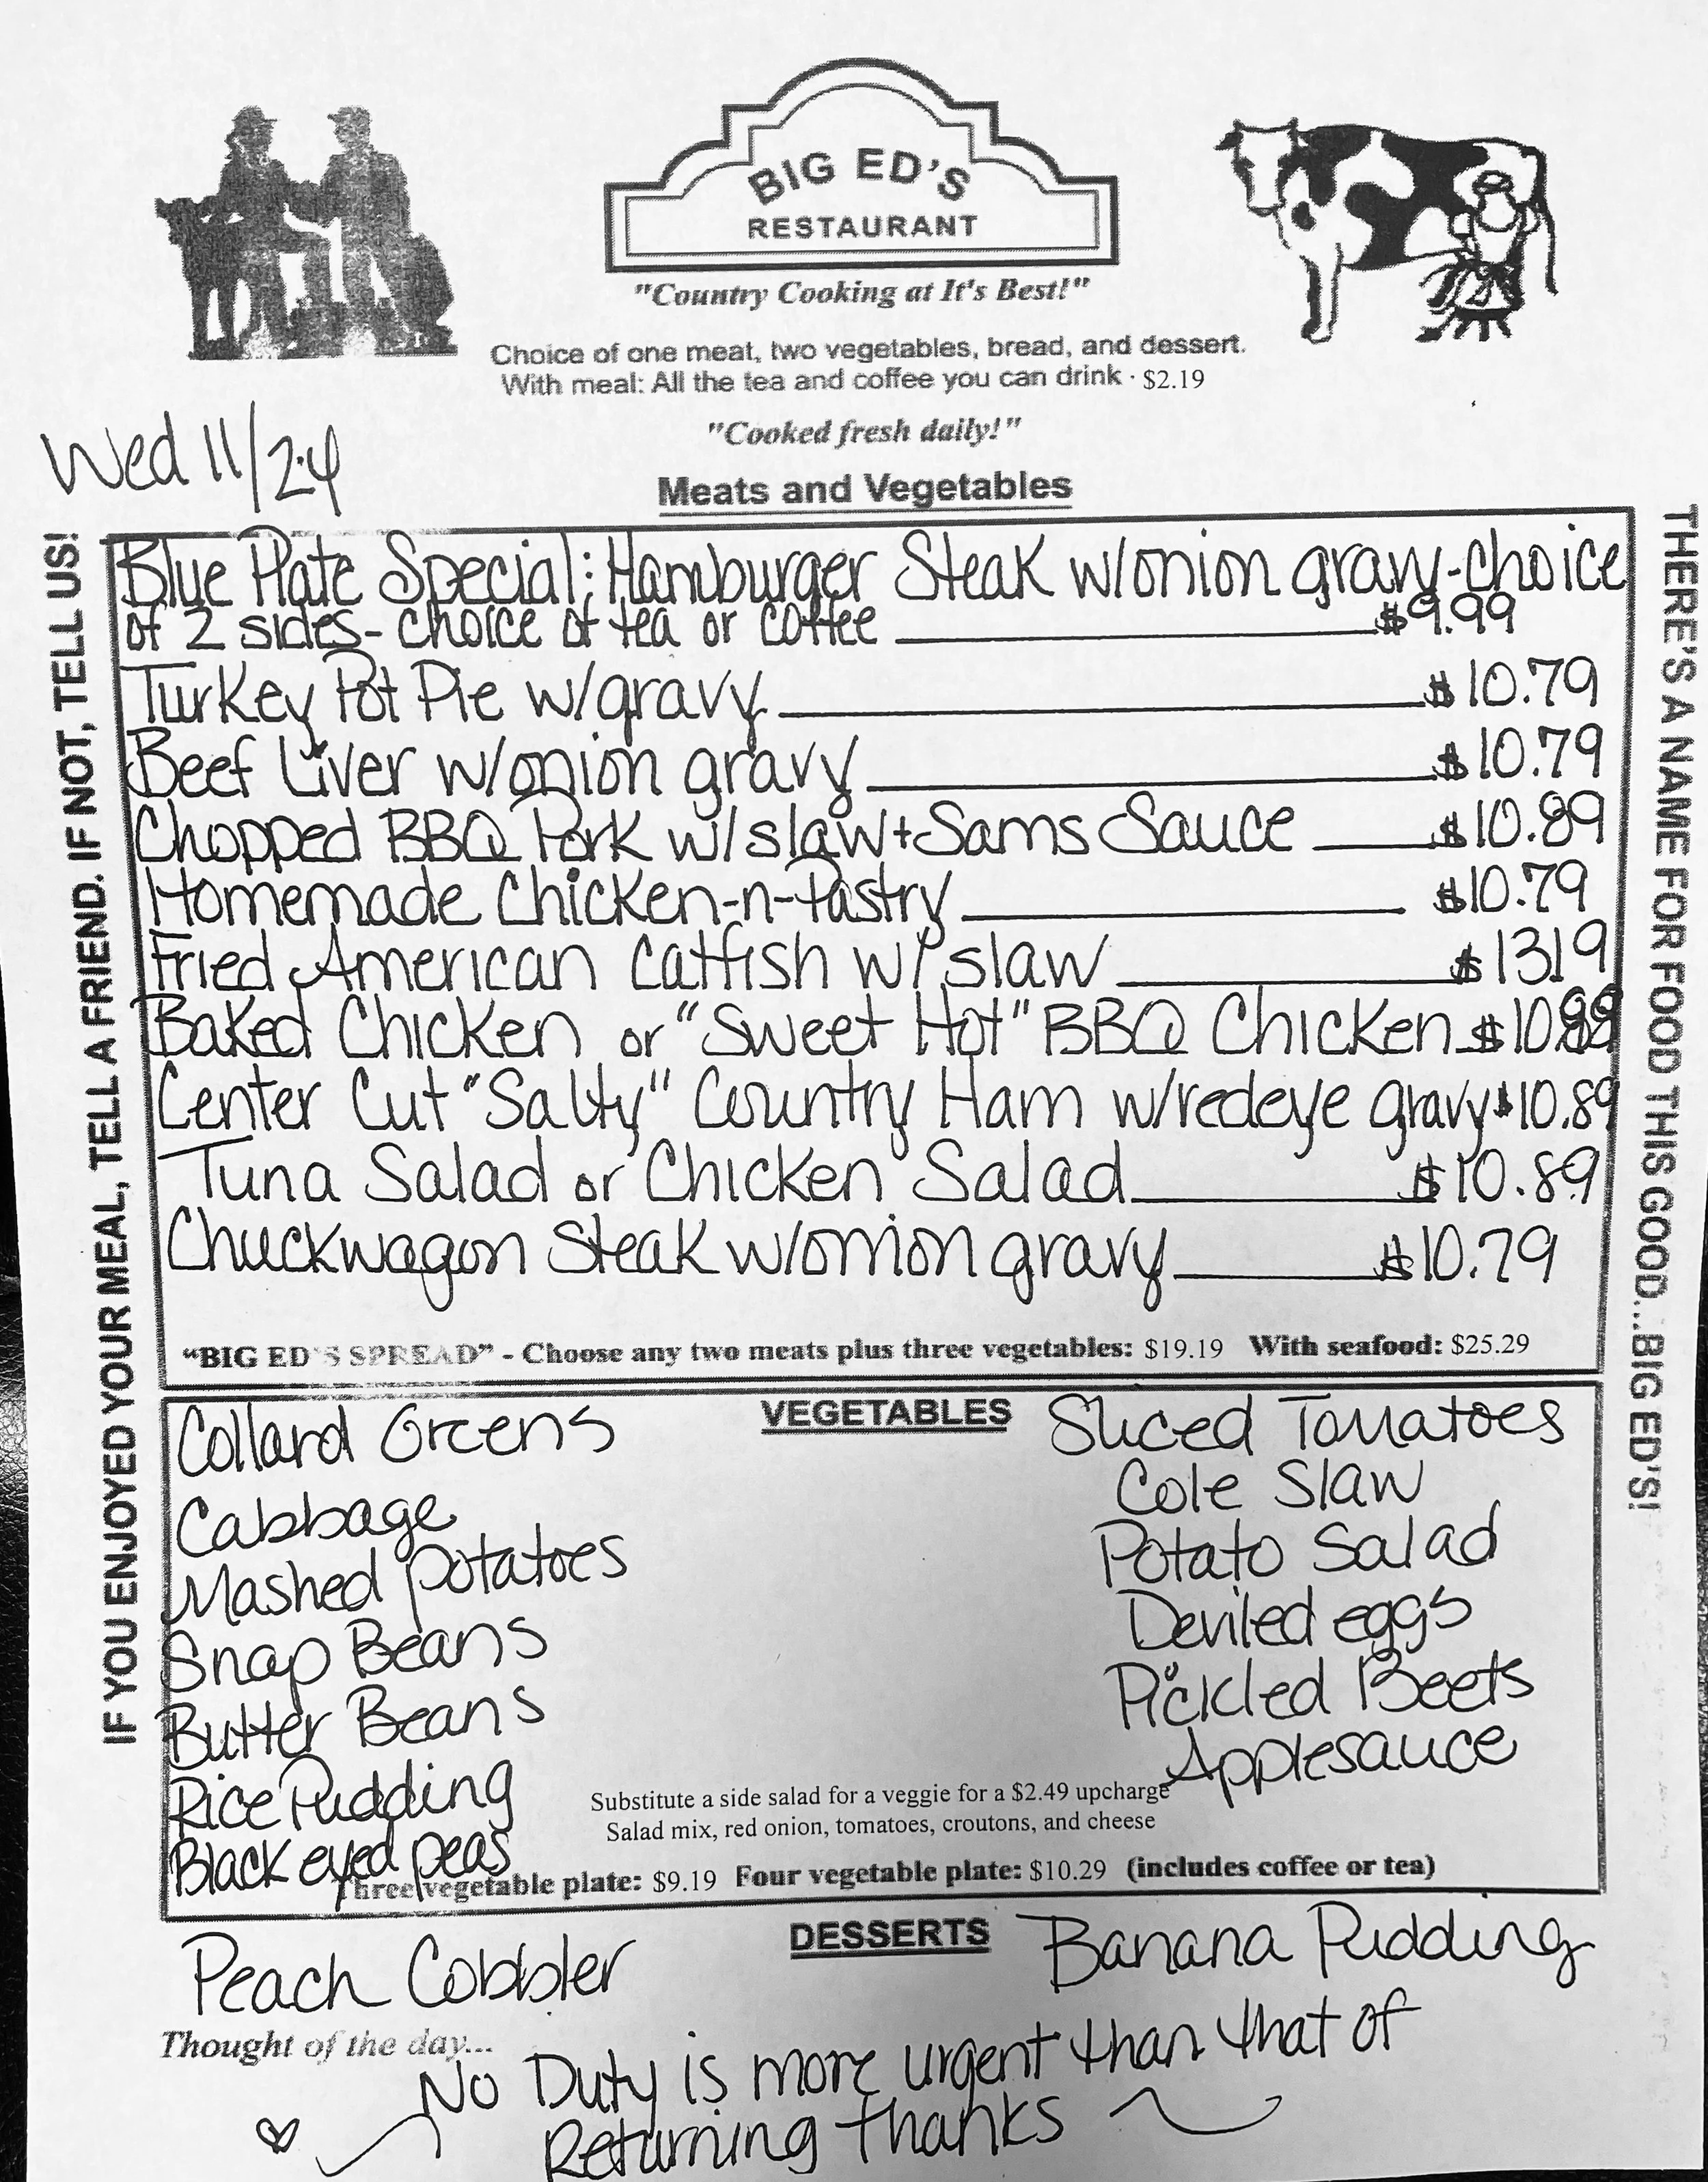 BIG ED'S
RESTAURANT
"Country Cooking at It's Best!"
Choice of one meat, two vegetables, bread, and dessert.
With meal: All the tea and coffee you can drink · $2.19
"Cooked fresh daily!"
Wed 11/24
Meats and Vegetables
IF YOU ENJOYED YOUR MEAL, TELL A FRIEND. IF NOT, TELL US!
THERE'S A NAME FOR FOOD THIS GOOD...BIG ED'S!
Blue Plate Special: Hamburger Steak w/onion gravy-choice
of 2 sides- choice of tea or coffee $9.99
Turkey Pot Pie w/gravy $10.79
Beef Liver w/onion gravy $10.79
Chopped BBQ Pork w/slaw+Sams Sauce $10.89
Homemade Chicken-n-Pastry $10.79
Fried American Catfish w/slaw $13.19
Baked Chicken or "Sweet Hot" BBQ Chicken $10.89
Center Cut "Salty" Country Ham w/redeye gravy $10.89
Tuna Salad or Chicken Salad $10.89
Chuckwagon Steak w/onion gravy $10.79
"BIG ED'S SPREAD" - Choose any two meats plus three vegetables: $19.19 With seafood: $25.29
VEGETABLES
Collard Greens
Cabbage
Mashed potatoes
Snap Beans
Butter Beans
Rice Pudding
Black eyed peas
Sliced Tomatoes
Cole Slaw
Potato Salad
Deviled eggs
Pickled Beets
Applesauce
Substitute a side salad for a veggie for a $2.49 upcharge
Salad mix, red onion, tomatoes, croutons, and cheese
Three vegetable plate: $9.19 Four vegetable plate: $10.29 (includes coffee or tea)
DESSERTS
Peach Cobbler
Banana Pudding
Thought of the day...
No Duty is more urgent than that of
Returning thanks